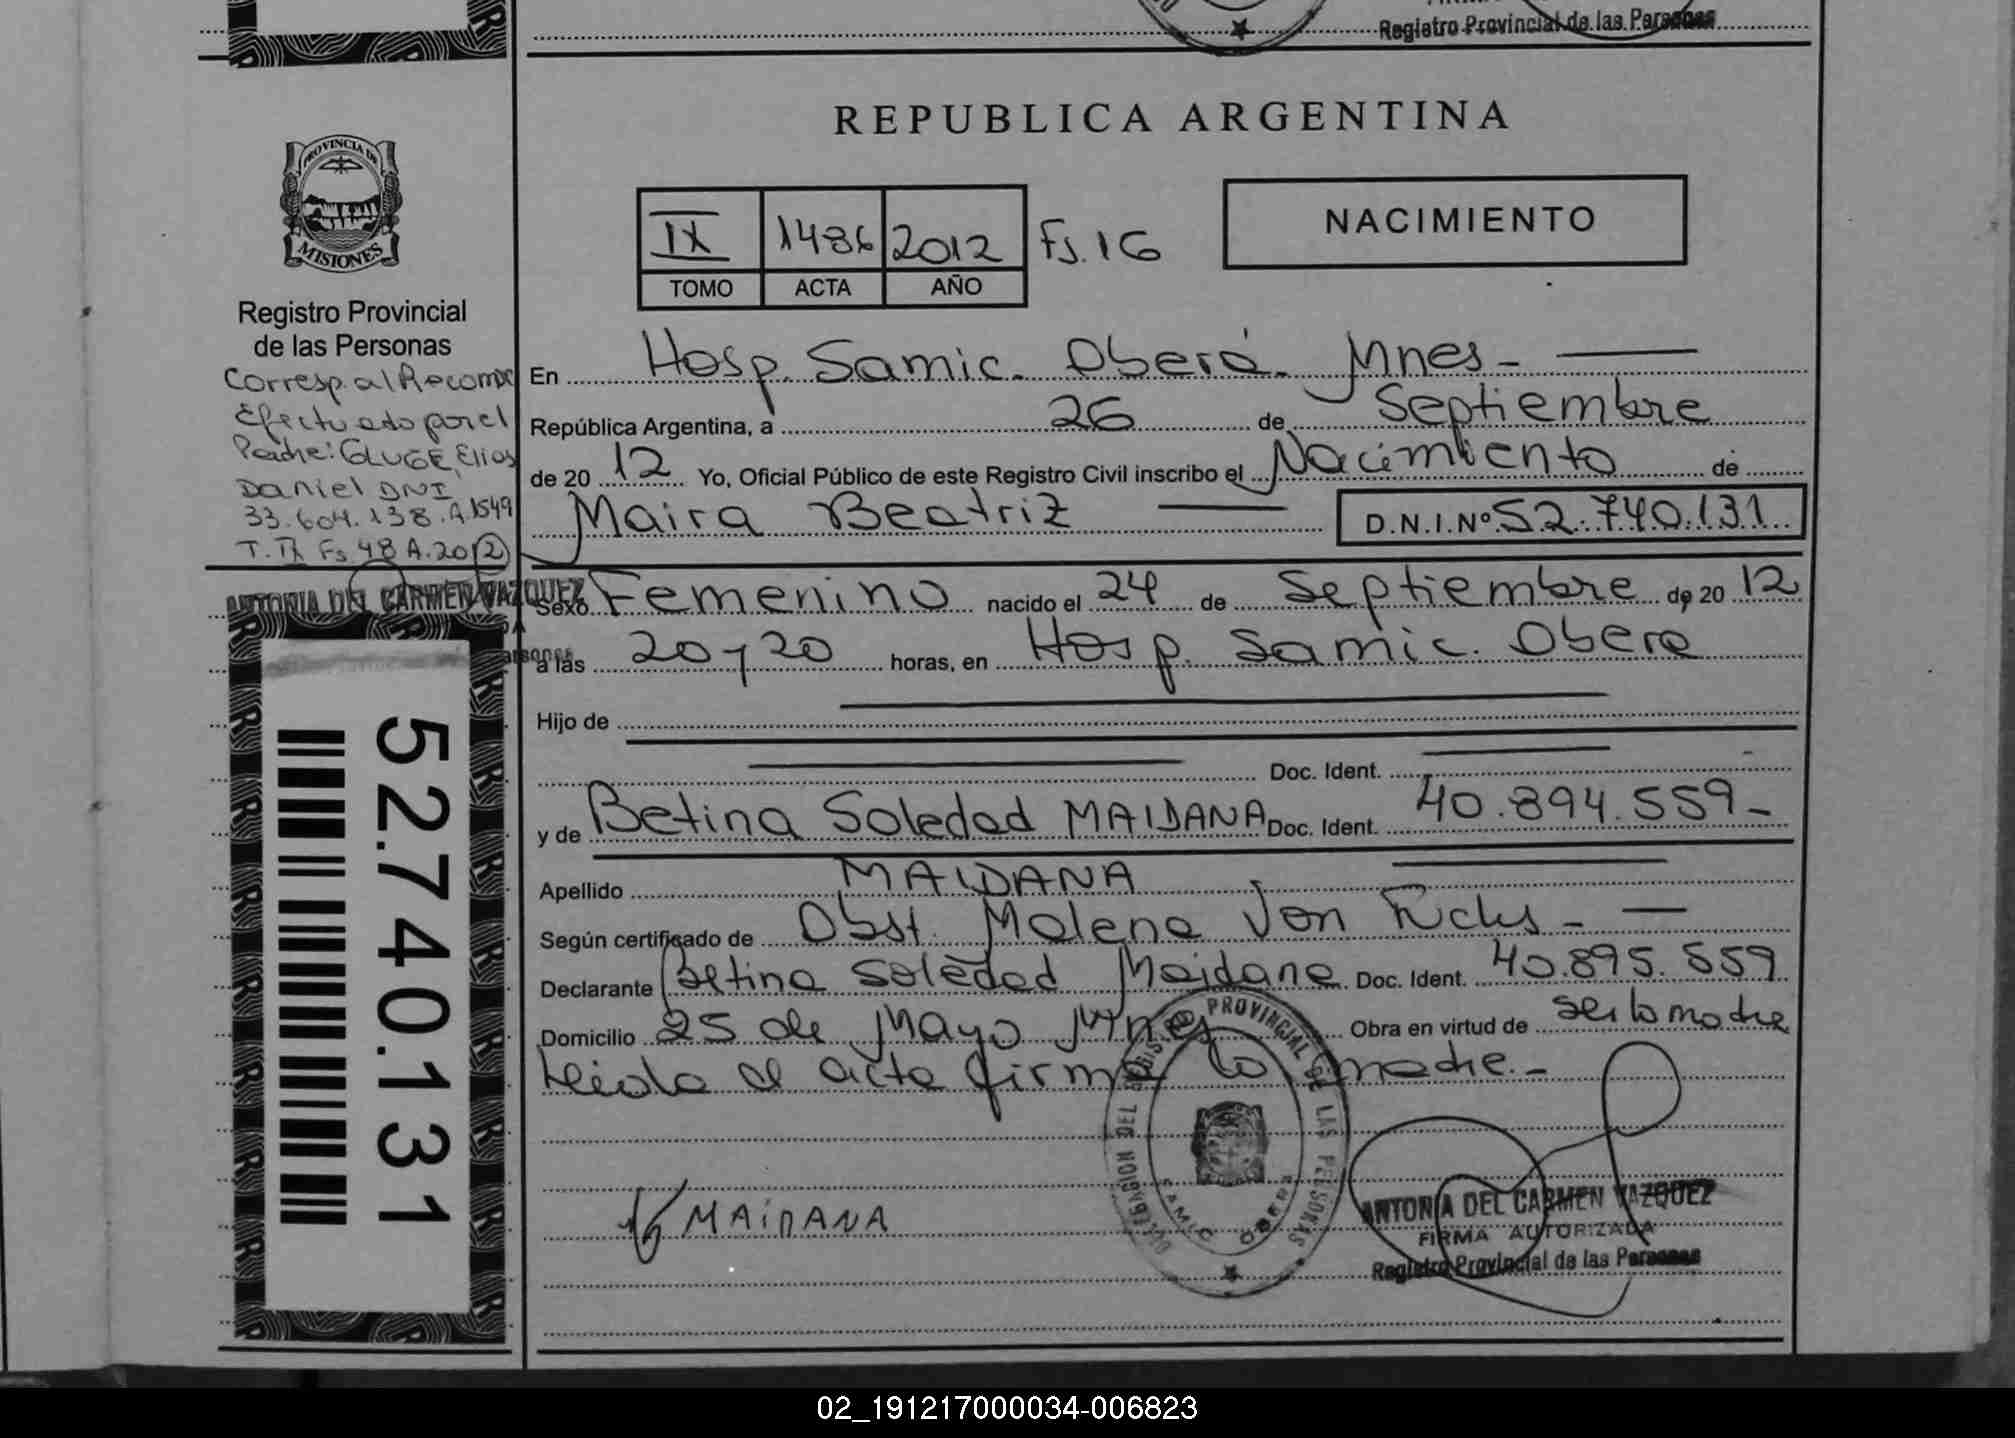 Registro Provincial de las Personas
REPUBLICA ARGENTINA
PROVINCIA DE
MISIONES
Registro Provincial
de las Personas
Corresp. al Recomc
Efectuado por el
Padre: GLUGE, Elias
Daniel DNI
33.604.138.A.1549
Fs 48 A.2012
ANTONIA DEL CARMEN VAZQUEZ
52.740.131
IX 1486 2012 Fs. 16
TOMO ACTA AÑO
NACIMIENTO
En Hosp. Samic. Oberá. Mnes-
República Argentina, a 26 de Septiembre
de 20 12 Yo, Oficial Público de este Registro Civil inscribo el Nacimiento de
Maira Beatriz D.N.I.Nº 52.740.131
Sexo Femenino nacido el 24 de Septiembre de 20 12
a las 20 y 20 horas, en Hosp. Samic. Obera
Hijo de
Doc. Ident.
y de Betina Soledad MAIDANA Doc. Ident. 40.894.559-
Apellido MAIDANA
Según certificado de Obst. Malena Von Fuchs-
Declarante Betina Soledad Maidana Doc. Ident. 40.895.559
Domicilio 25 de Mayo Mnes Obra en virtud de ser la madre
Leida el acta firma la madre.-
DELEGACION DEL REGISTRO PROVINCIAL DE LAS PERSONAS
SAMIC OBERA
MAIDANA
ANTONIA DEL CARMEN VAZQUEZ
FIRMA AUTORIZADA
Registro Provincial de las Personas
02_191217000034-006823